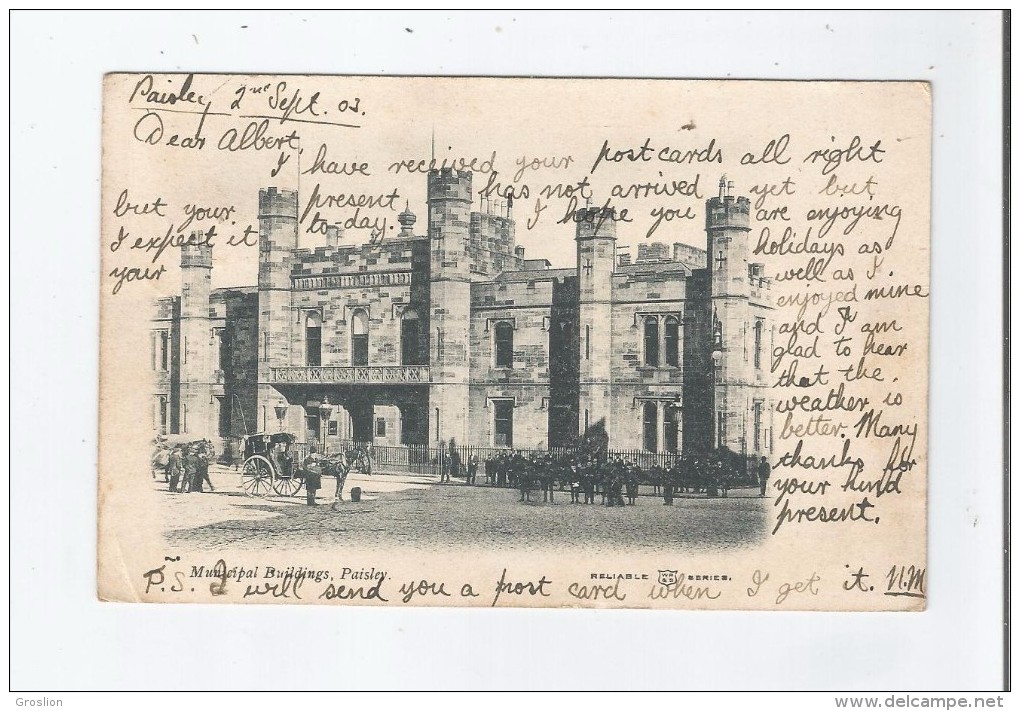 Paisley 2nd Sept. 03.
Dear Albert,
I have received your postcards all right
but your present has not arrived yet but
I expect it to-day. I hope you are enjoying
your holidays as
well as I.
enjoyed mine
and I am
glad to hear
that the
weather is
better. Many
thanks for
your kind
present.
Municipal Buildings, Paisley.
RELIABLE WR&S SERIES.
P.S. I will send you a post card when I get it. N.M
Groslion
http://www.delcampe.net